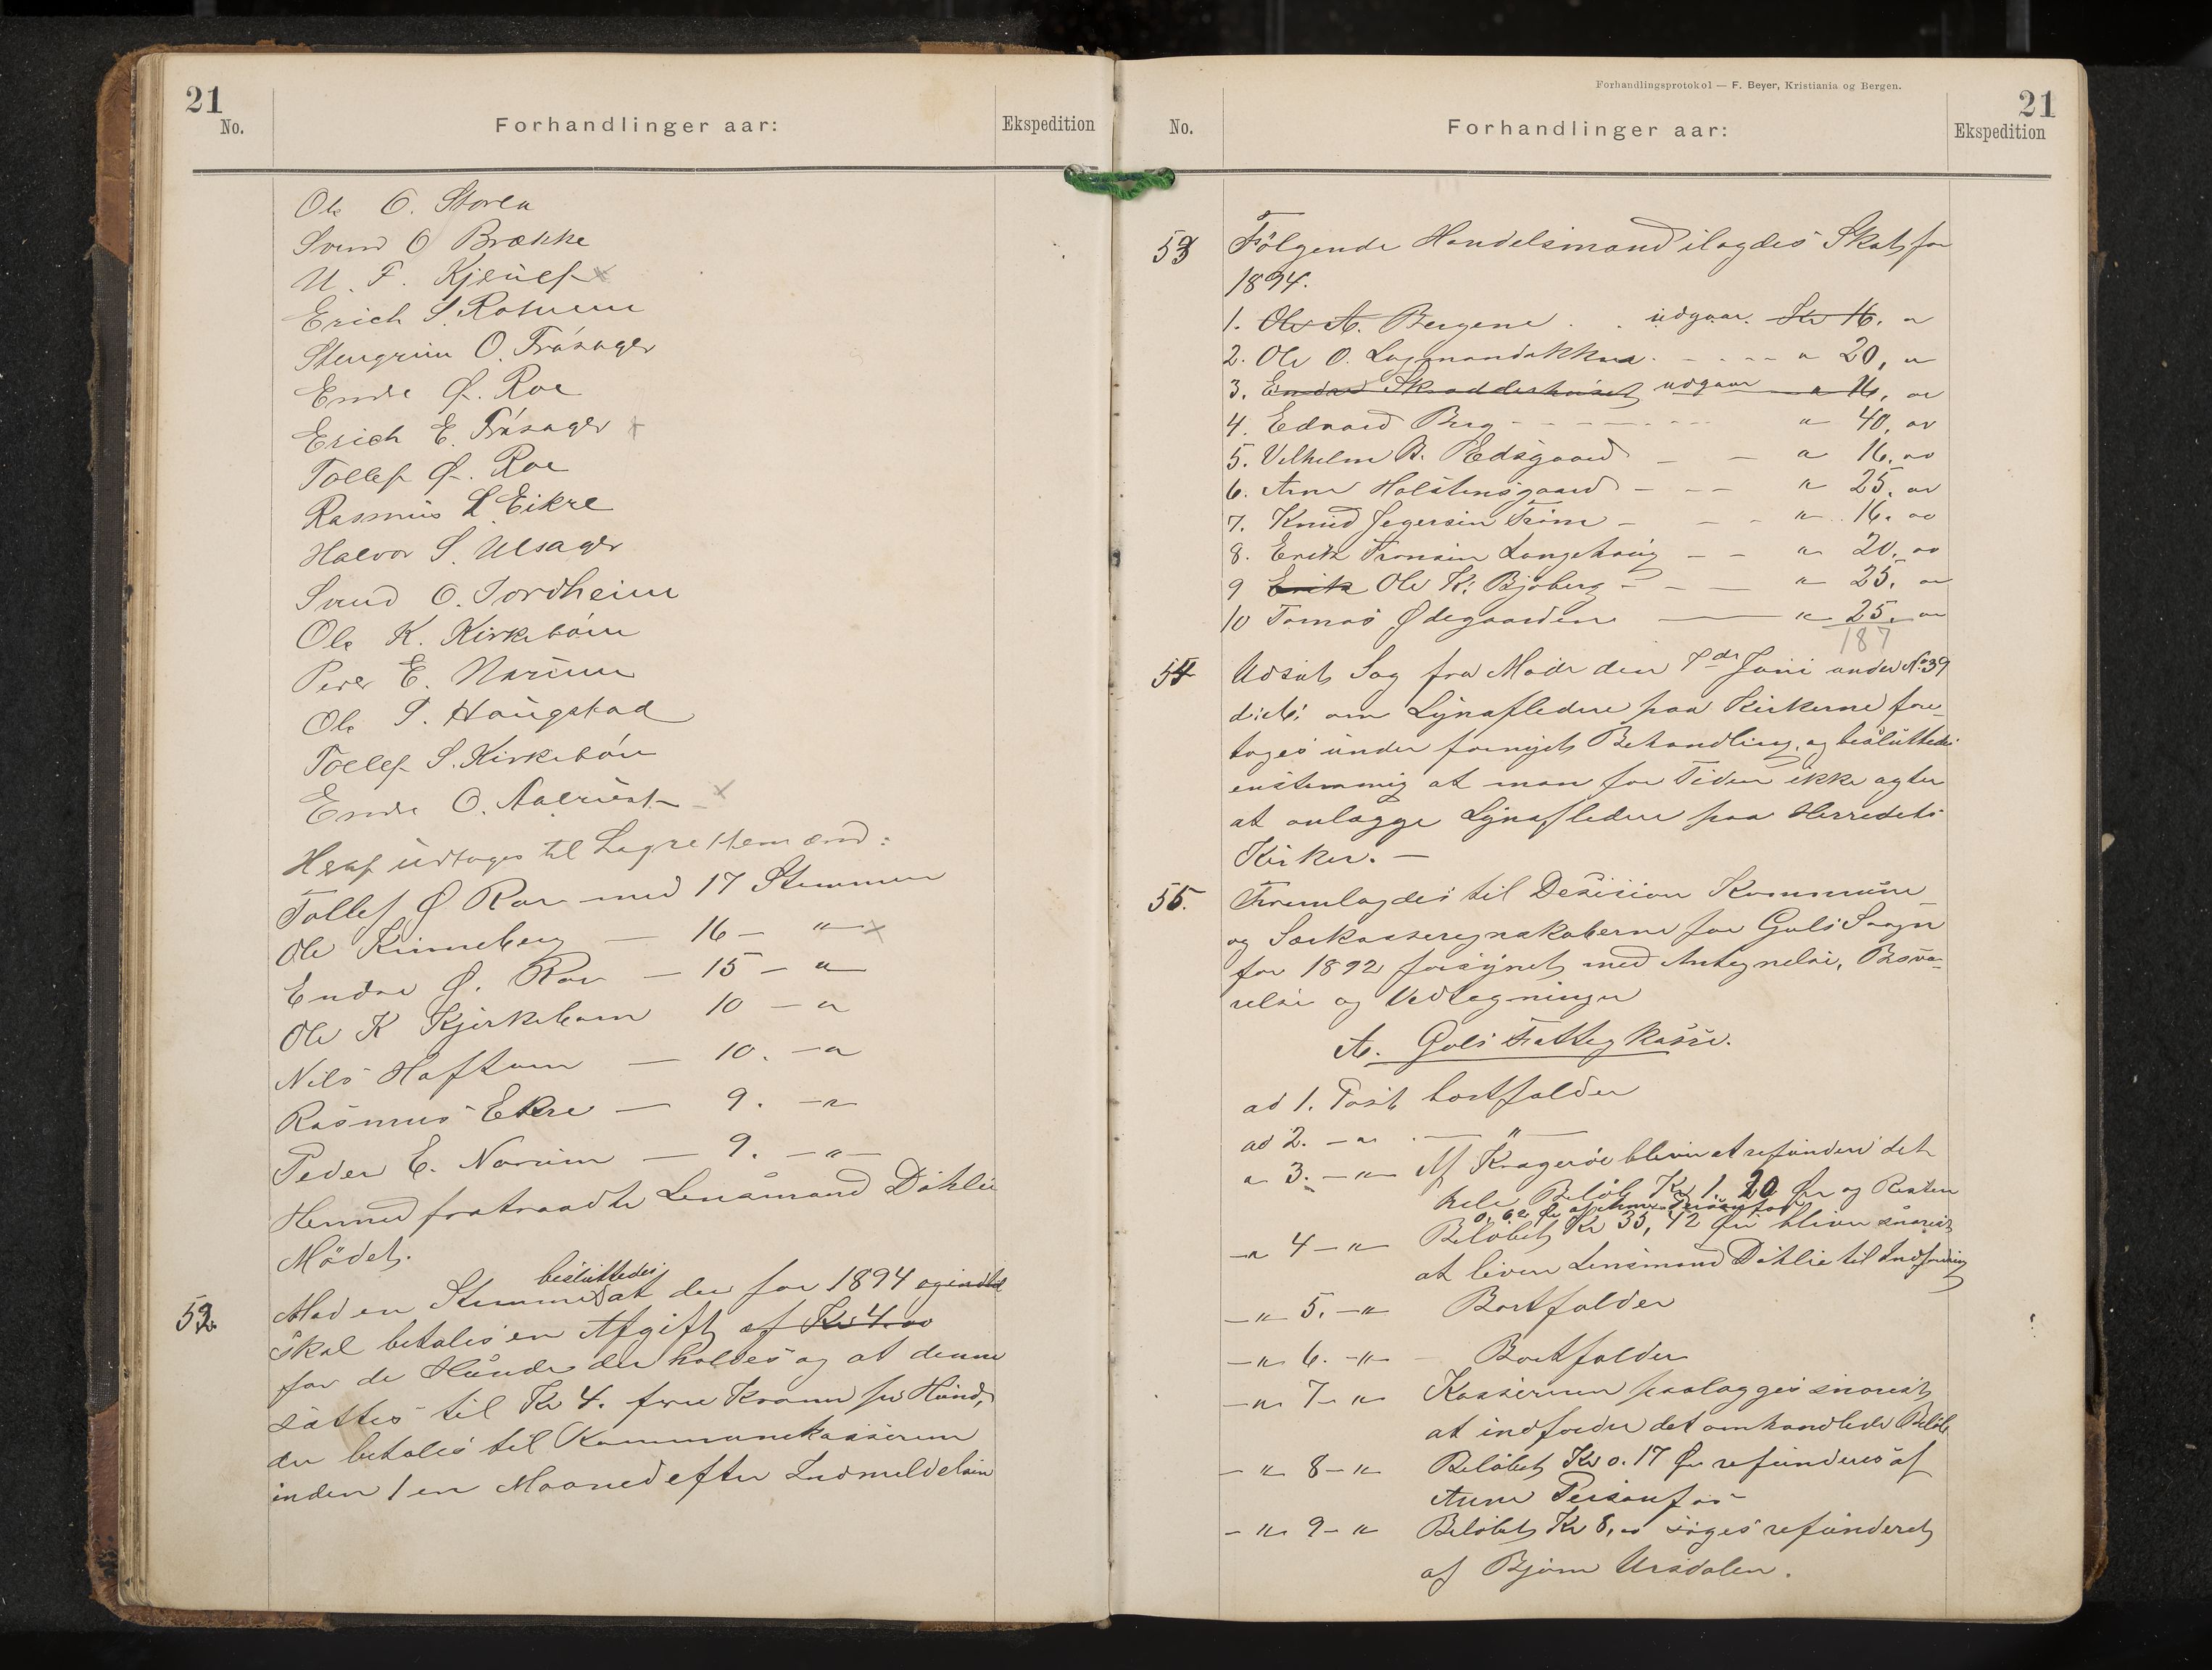 21
No.
Forhandlinger aar:
Ekspedition
Ole O. Storla
Svend O Brække
N. F. Kjeulf
Erich S. Rotneim
Stengrim O. Trøsager
Endre Ø. Roe
Erich E. Trøsager
Tollef Ø. Roe
Rasmus L Eikre
Halvor S. Ulsager
Svend O. Jordheim
Ole K. Kirkebøen
Peder E. Narum
Ole T. Haugstad
Tollef S. Kirkebøen
Endre O. Aalrust
Heraf udtages til Lagrettemænd:
Tollef Ø Roe med 17 Stemmer
Ole Kinneberg — 16 — "
Endre Ø. Roe — 15 — "
Ole K Kjirkeboen 10 — "
Nils Haftum — 10. — "
Rasmus Ekre — 9. — "
Peder E. Narum — 9. — " —
Hermed fratraadte Lensmand Døhlie
Mødet.
52.
besluttedes
Mod en Stemme at der for 1894 og indtil
skal betales en Afgift af Kr 4.00
for de Hunde der holdes og at denne
sættes til Kr 4. fire Kroner pr Hund,
der betales til Kommunekasseren
inden 1 en Maaned efter Indmeldelsen
Forhandlingsprotokol — F. Beyer, Kristiania og Bergen.
21
No.
Forhandlinger aar:
Ekspedition
53 Følgende Handelsmænd ilagdes Skat for
1894.
1. Ole A. Bergene . . udgaar. Kr 16. "
2. Ole O. Lagmandsokken . - - - - " 20, "
3. Endre Skradderhuset udgaar — " 16, oo
4. Edvard Berg - - - - - - - " 40, oo
5. Vilhelm B. Edsgaard — — " 16. oo
6. Arne Halstensgaard — — — " 25. oo
7. Knud Jegersen Trøim — — - " 16. oo
8. Erik Tronsen Langehaug — — " 20. oo
9 Erik Ole K. Bjøberg — — — " 25. oo
10 Tomas Ødegaarden — " 25. oo
187
54 Udsat Sag fra Møde den 7de Juni under No 39
d: A: om Lynafledere paa Kirkerne fore-
toges under fornyet Behandling, og besluttedes
enstemmig at man for Tiden ikke agter
at anlægge Lynafledere paa Herredets
Kirker. —
55. Fremlagdes til Desision Kommune-
og Særkasseregnskaberne for Gols Sogn
for 1892 forsynet med Antegnelse, Besva-
relse og Vedtegninger
A. Gols Fattigkasse.
ad 1. Post bortfalder
ad 2. — " . — " —
" 3. — " Af Kragerøe bliver at refundere det
hele Beløb Kr 1. 20 Øre og Resten
0, 62 Øre af Anne Persanfos
— " 4 — " Beløbet Kr 35, 42 Øre bliver snarest
at levere Lensmand Døhlie til Indfordring
— " 5. — " Bortfalder
— " 6. — " — Bortfalder
— " 7 — " Kassereren paalægges snarest
at indfordre det omhandlede Beløb
— " 8 — " Beløbet Kr 0. 17 Øre refunderes af
Anne Persanfos
— " 9 — " Beløbet Kr 8, oo søges refunderet
af Bjørn Ursdalen.